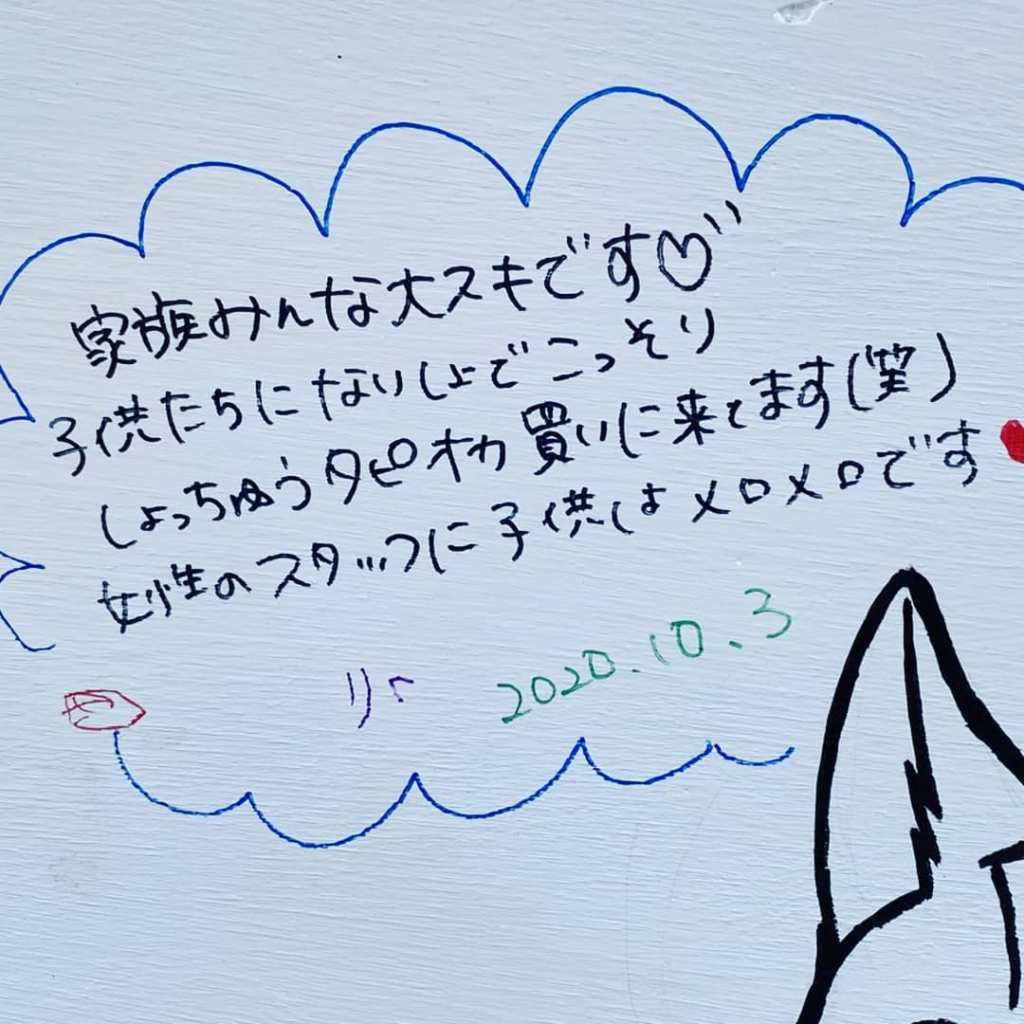 家族みんな大スキです♡
子供たちにないしょでこっそり
しょっちゅうタピオカ買いに来てます(笑)
女性のスタッフに子供はメロメロです
2020.10.3